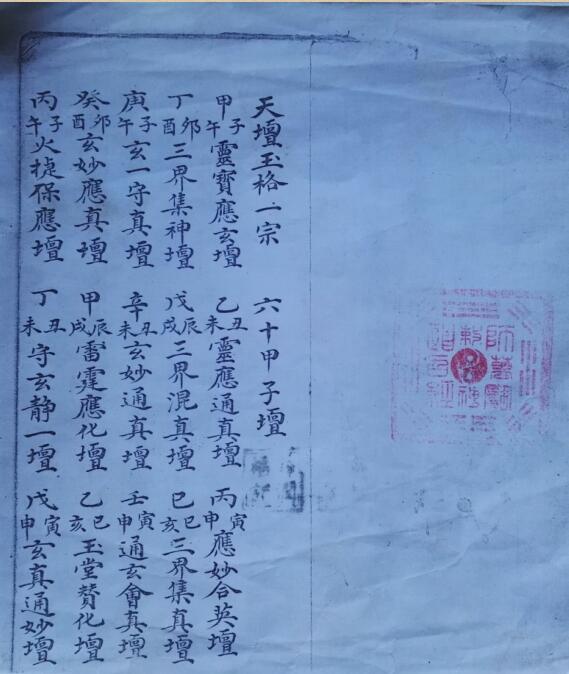 天壇玉格一宗 六十甲子壇
甲子午靈寶應玄壇 乙丑未靈應通真壇 丙寅申應妙合英壇
丁卯酉三界集神壇 戊辰戌三界混真壇 己巳亥三界集真壇
庚子午玄一守真壇 辛丑未玄妙通真壇 壬寅申通玄會真壇
癸卯酉玄妙應真壇 甲辰戌雷霆應化壇 乙巳亥玉堂賛化壇
丙子午火捷保應壇 丁丑未守玄静一壇 戊寅申玄真通妙壇